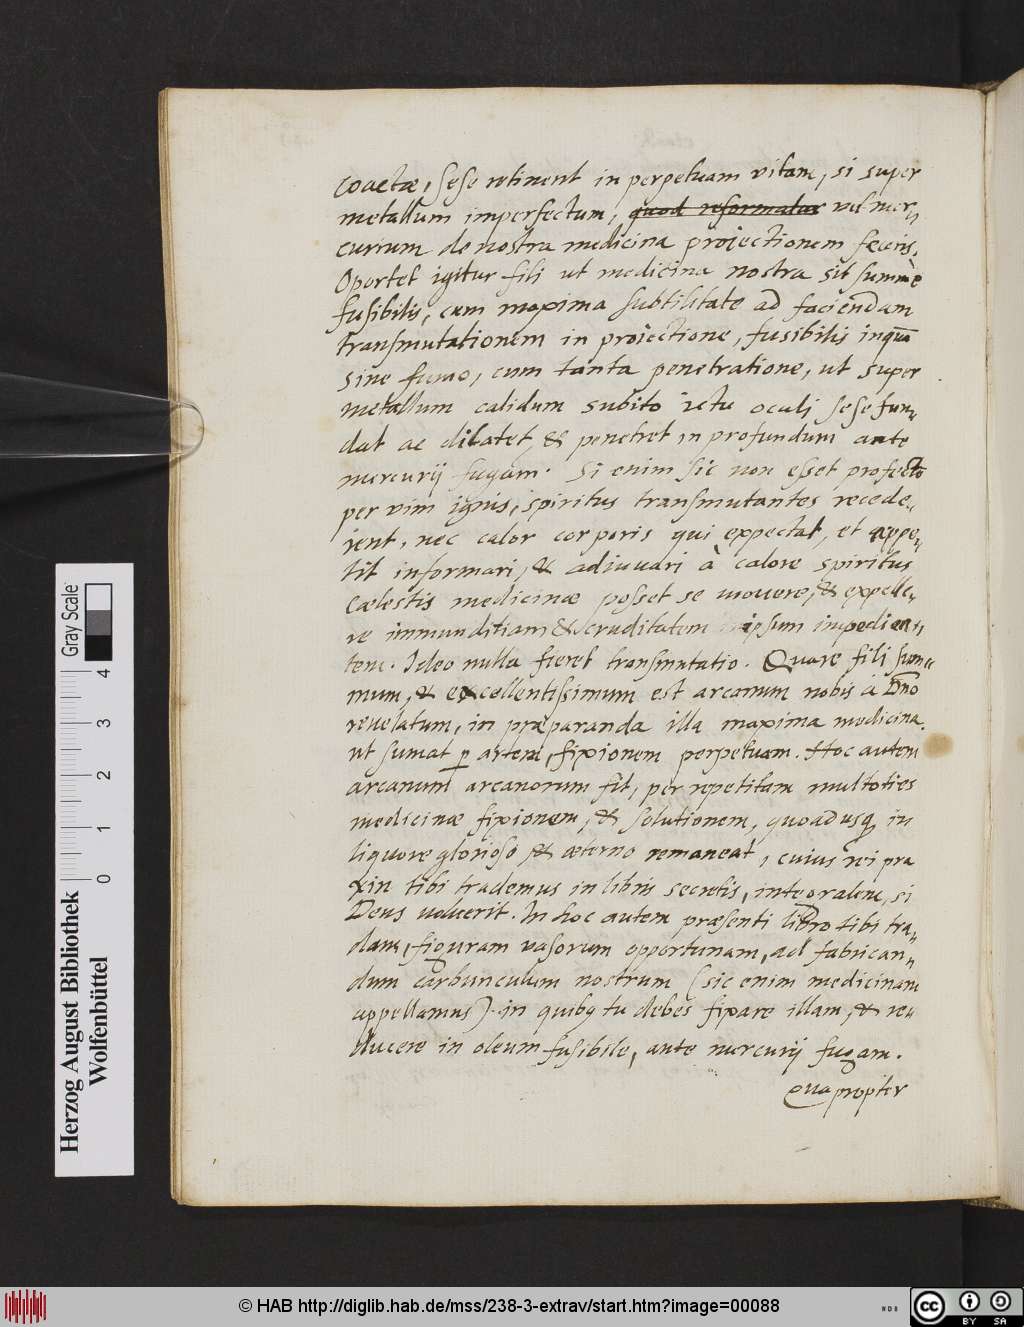 coactæ, sese retinent in perpetuam vitam, si super
metallum imperfectum, quod reformatur vel mer„
curium de nostra medicina projectionem feceris.
Oportet igitur fili ut medicina nostra sit summè
fusibilis, cum maxima subtilitate ad faciendam
transmutationem in proiectione, fusibilis inquā
sine fumo, cum tanta penetratione, ut super
metallum calidum subito ictu oculi sese fun„
dat ac dilatet, & penetret in profundum ante
mercurij fugam. Si enim sic non esset profecto
per vim ignis, spiritus transmutantes recede„
rent, nec calor corporis qui expectat, et appe„
tit informari, & adiuvari à calore spiritus
cælestis medicinæ posset se movere, & expelle„
re immunditiam & cruditatem ipsum impedien„
tem. Ideo nulla fieret transmutatio. Quare fili sum„
mum, & excellentissimum est arcanum nobis à Dno
revelatum, in præparanda illa maxima medicina
ut sumat p artem, fixionem perpetuam. Hoc autem
arcanum arcanorum fit, per repetitam multoties
medicinæ fixionem, & solutionem, quoadusq in
liquore glorioso & æterno remaneat, cuius rei pra
xin tibi trademus in libris secretis, integralem, si
Deus voluerit. In hoc autem præsenti libro tibi tra„
dam, figuram vasorum opportunam, ad fabrican„
dum carbunculum nostrum (sic enim medicinam
appellamus) in quibq tu debes fixare illam, & re„
ducere in oleum fusibile, ante mercurij fugam.
Quapropter
Herzog August Bibliothek
Wolfenbüttel
0 1 2 3 4
Gray Scale
© HAB http://diglib.hab.de/mss/238-3-extrav/start.htm?image=00088
NDB
cc BY SA